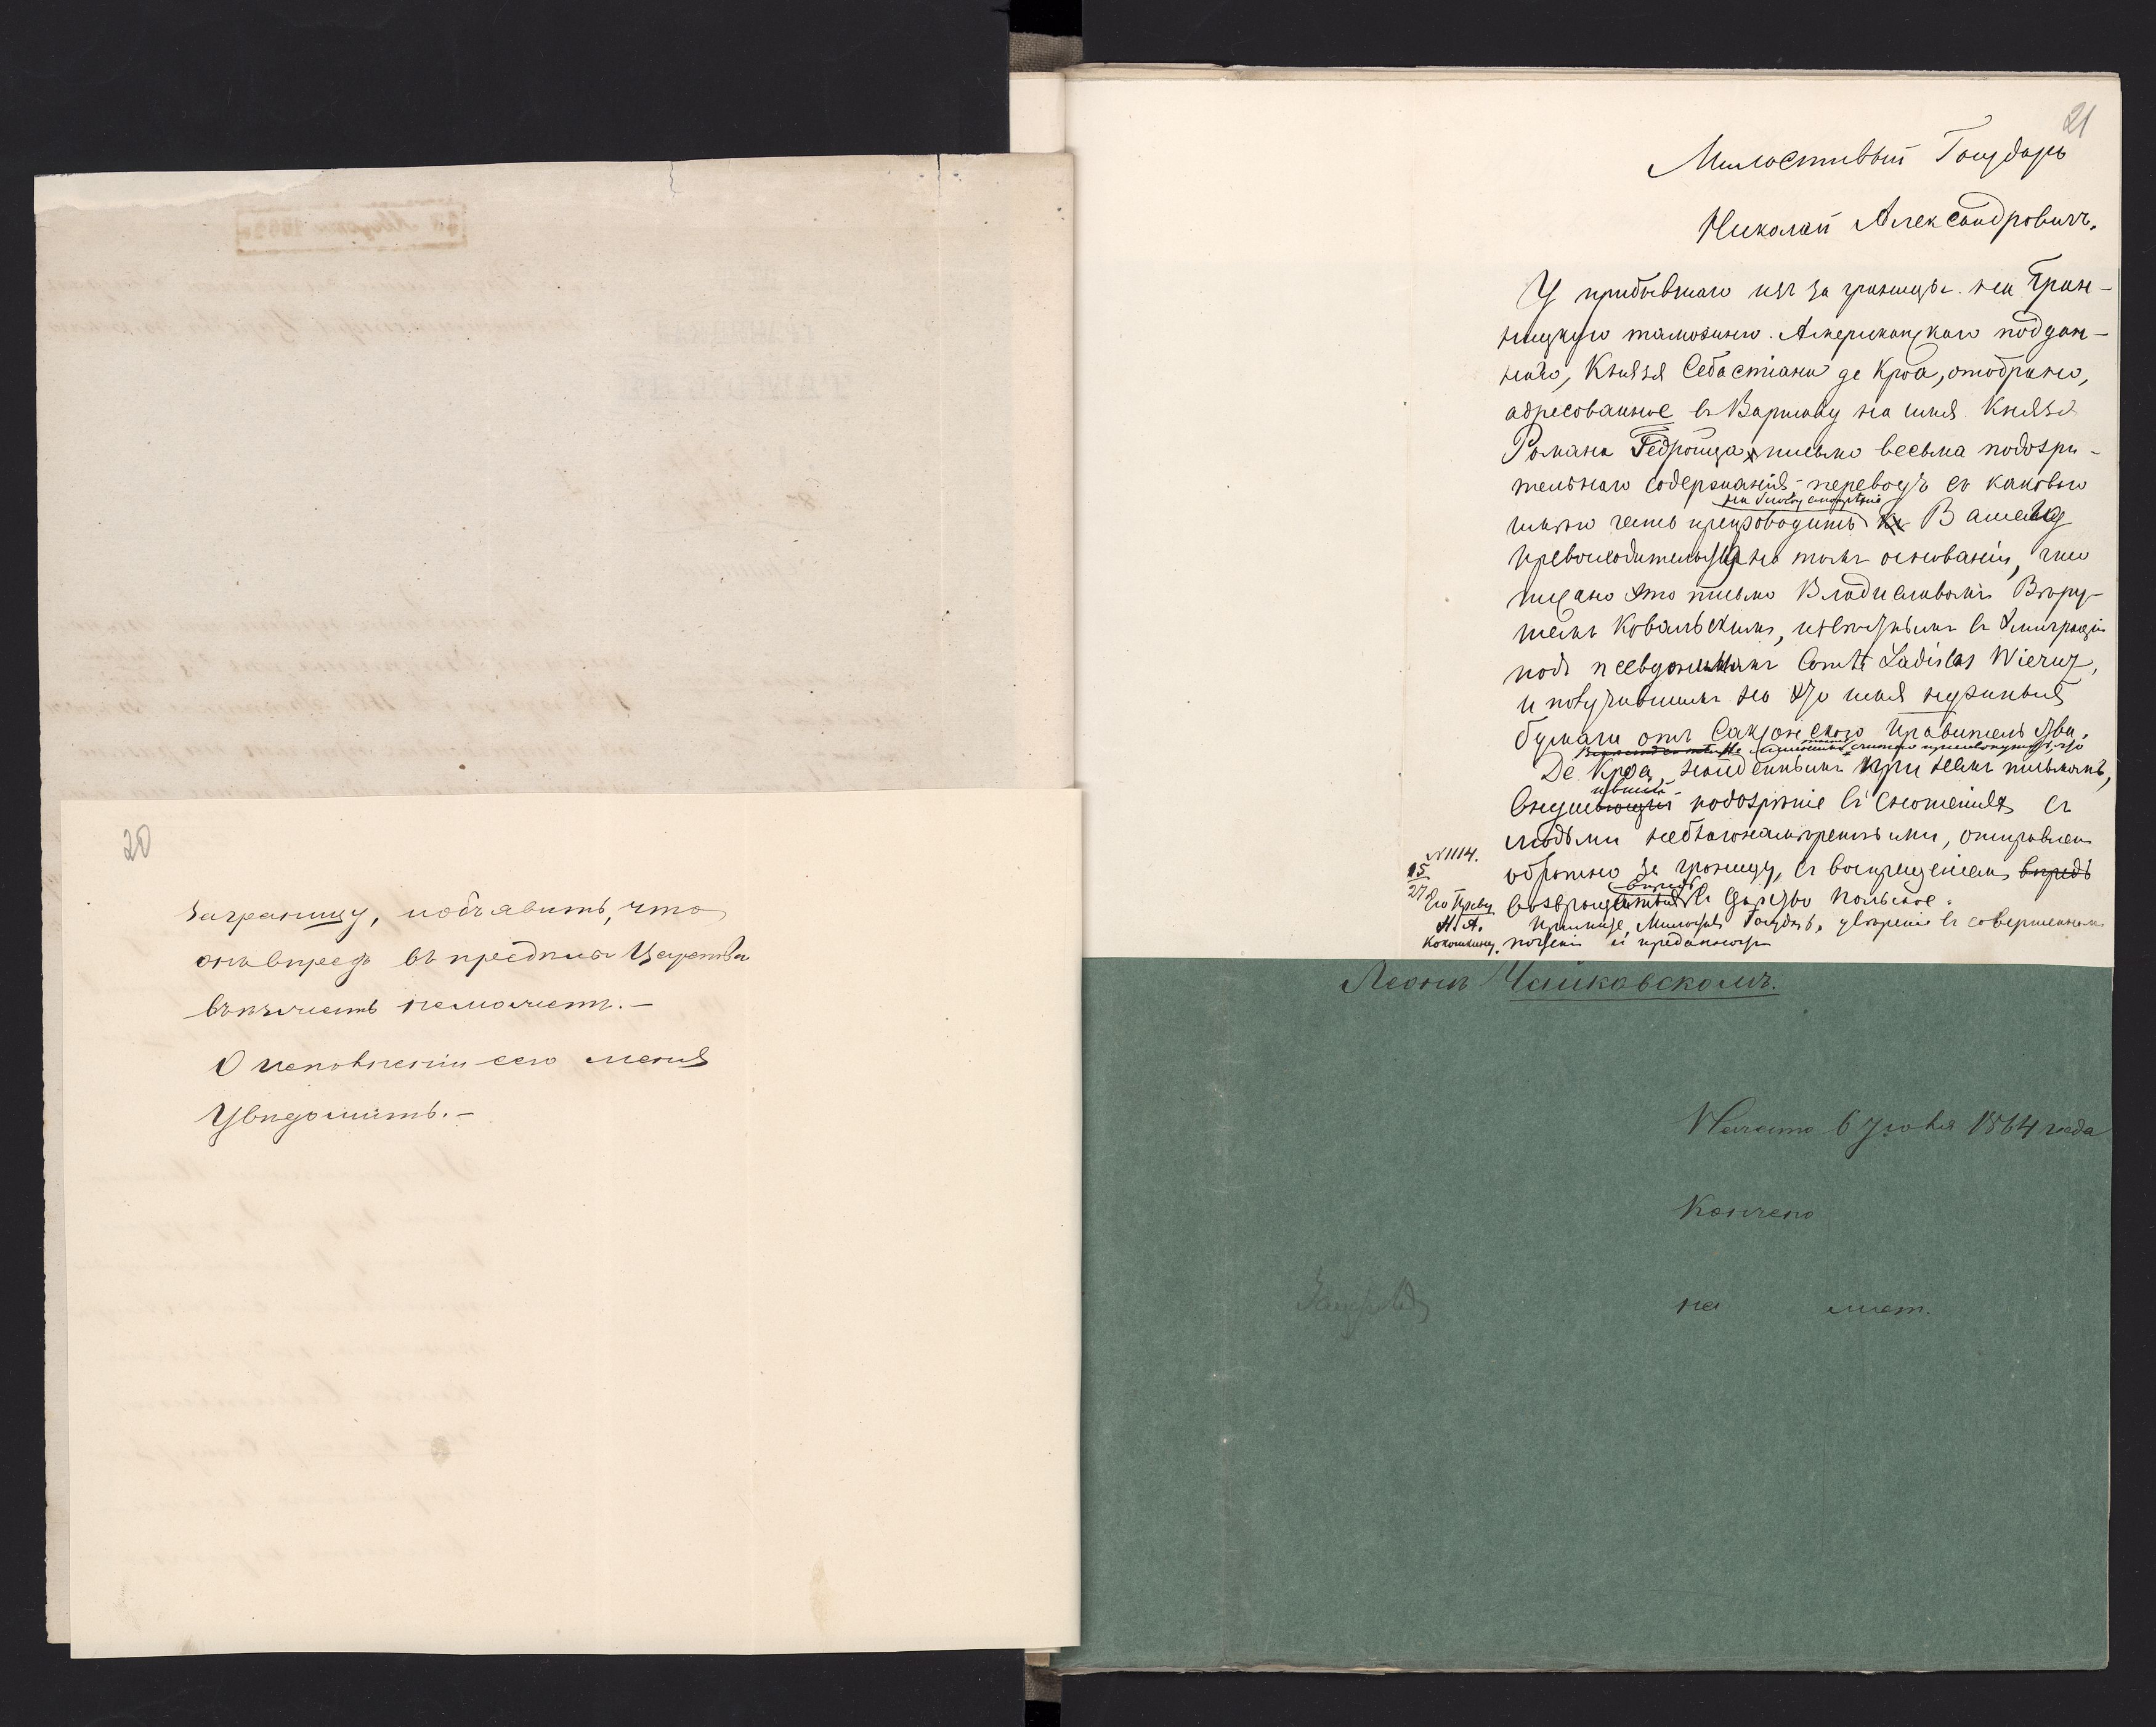 20
заграницу, и объявить, что
онъ впредь въ предѣлы Царства
въѣзжать не можетъ.—
О исполненіи сего меня
Увѣдомить.—
21
Милостивый Государь
Николай Александровичъ.
У прибывшаго изъ за границы на Гран-
ницкую таможню Американскаго поддан-
наго, Князя Себастіана де Кроа, отобрано,
адресованное въ Варшаву на имя Князя
Романа Гедройца письмо весьма подозри-
тельнаго содержанія – переводъ съ каковаго
имѣю честь препроводить Вашему
Превосходительству на томъ основаніи, что
писано это письмо Владиславомъ Вѣру-
шемъ Ковальскимъ, извѣстнымъ въ Эмиграціи
подъ псевдонимомъ Comte Ladislas Wierusz,
и получившимъ на это имя нужныя
бумаги отъ Саксонскаго Правительства.
Де Кроа, найденнымъ при немъ письмамъ,
подозрѣніе въ сношеніяхъ съ
людьми неблагонамѣренными, отправленъ
обратно за границу, съ воспрещеніемъ впредь
впредь
возвращаться въ Царство Польское.
Примите, Милостивый Государь, увѣреніе въ совершенномъ
почтеніи и преданности
N 1114.
15
27
Его Превод
Н. А.
Кокошкину
Леонѣ Чайковскомъ.
Начато 6 Іюня 1864 года
Кончено
на лист.